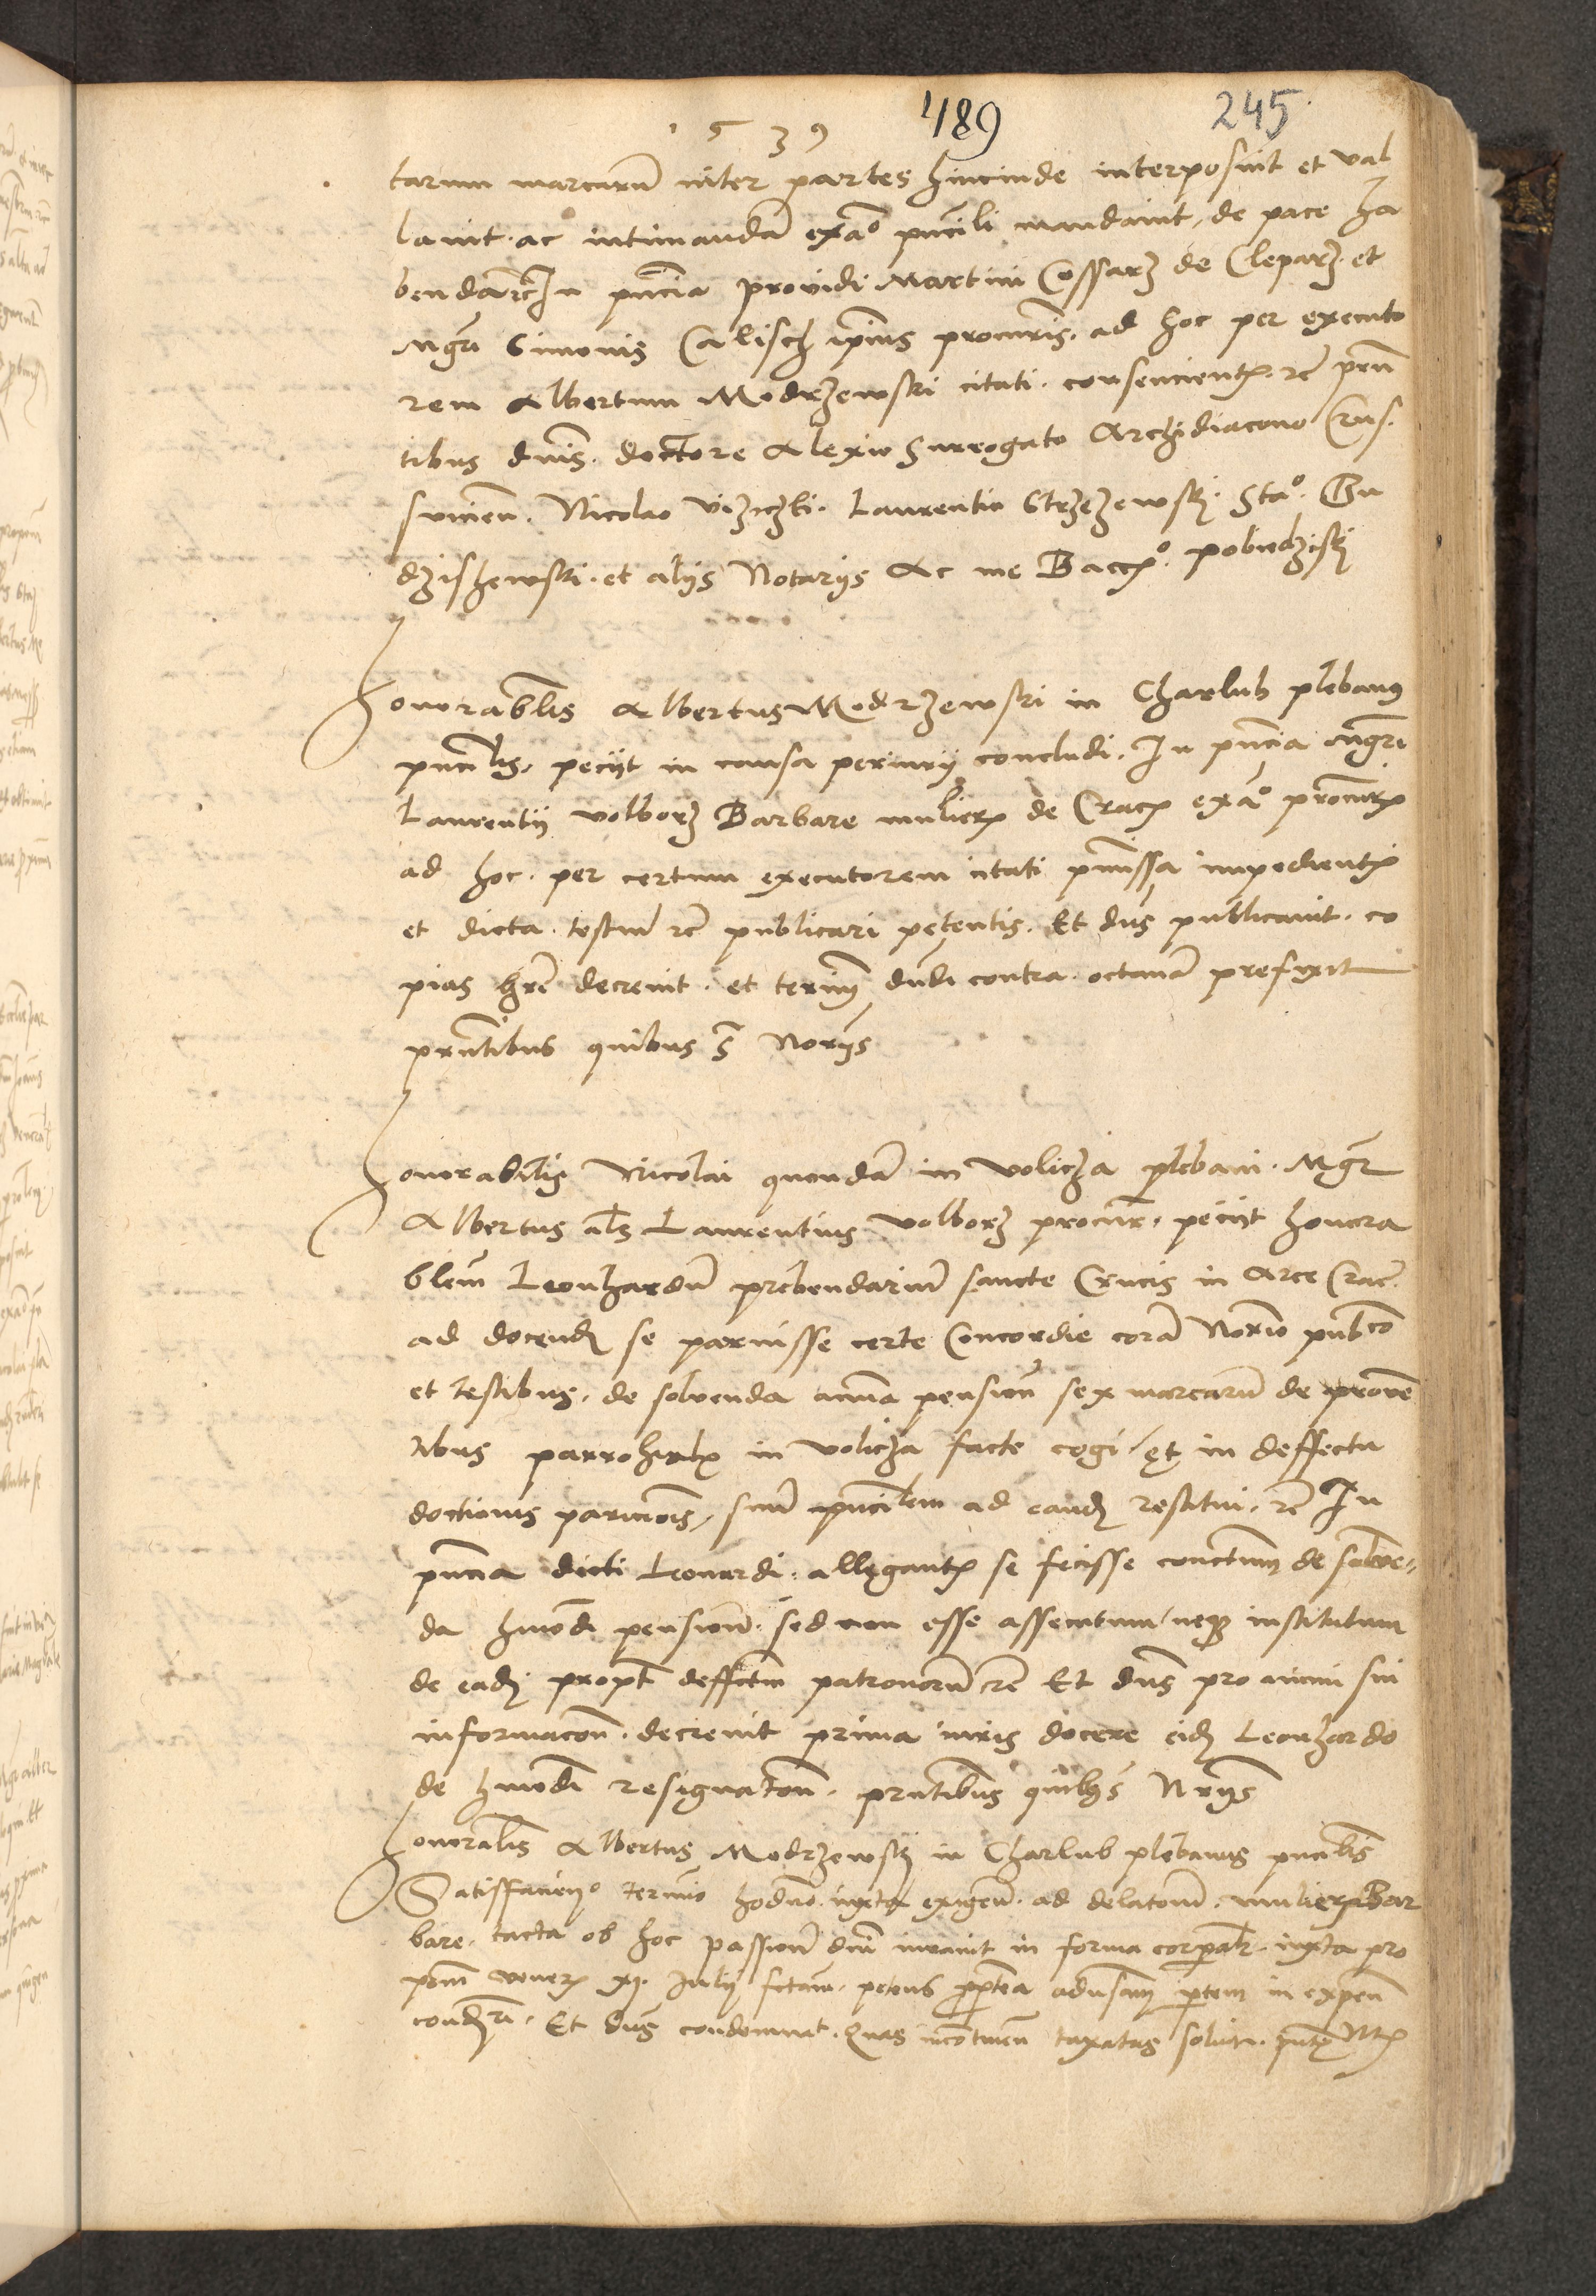 1539 489 245
tarum marcarū inter partes hincinde interposuit et val
lauit ac intimandā exãº pn̄cīli mandauit, de pace ha
benda rc̄ In pn̄cia prouidi Martini Cossarz de Cleparz et
Mgr̄i Simonis Calisch ip̄ius procur̄is, ad hoc per executo
rem Albertum Modrzewski citati consencient rc̄ pn̄
tibus dn̄is doctore Alexio Surrogato Archidiacono Crus
suicien̄ Nicolao Laurentio Strzezewskj Staº Gu
dzishewski et alijs Notarijs Ac me Bacº pobiedziskj
Honorabl̄is Albertus Modrzewski in Charlub plēbanus
pn̄cīlis, peciit in causa periurij concludi, In pn̄cia mgr̄i
Laurentij Volborz Barbare mulier de Crac exãº procur
ad hoc per certum executorem citati pm̄issa impedient
et dicta testiū rc̄ publicari petentis. Et dn̄s publicauit co
pias hr̄i decreuit et termī dn̄di contra octauā prefixit
prn̄tibus quibus s̄ Norijs
Honorabilis Nicolai quondā in Volicza plebani Mgr̄
Albertus al̄s Laurentius Volborz procur̄ peciit honora
blem̄ Leonhardū prebendariū sancte Crucis in Arce Crac̄
ad docend se paruisse certe Concordie corā Norīo publco
et testibus, de soluenda annua pension̄ sex marcarū de prouen̄
tibus parrohial in Volicza facte cogi et in deffectu
doctionis paricionis, suū pn̄cīlem ad eand restitui rc̄ In
pn̄cia dicti Leonardi allegant se fecisse conctum de solue
da hmōdi pension̄ sed non esse assecutum neq institutum
de ead propt̄ deffctm patronorū rc̄ Et dn̄s pro animi sui
informacon̄ decreuit prima iuris docere eid Leonhardo
de hmōdi resignacon̄ prn̄tibus quibus s̄ Nrijs
Honorabl̄is Albertus Modrzewskj in Charlub plēbanus pn̄cīlis
Satisfacienº termino hodn̄o iuxta exigen̄ ad delacon̄ mulier Bar
bare, tacta ob hoc passion̄ dn̄i iurauit in forma corpal̄r iuxta pro
vener xj Julij fctam petens adūsam̄ ptem in expen̄
condn̄ri. Et dn̄s condemnat Quas incontinen̄ taxatas soluit